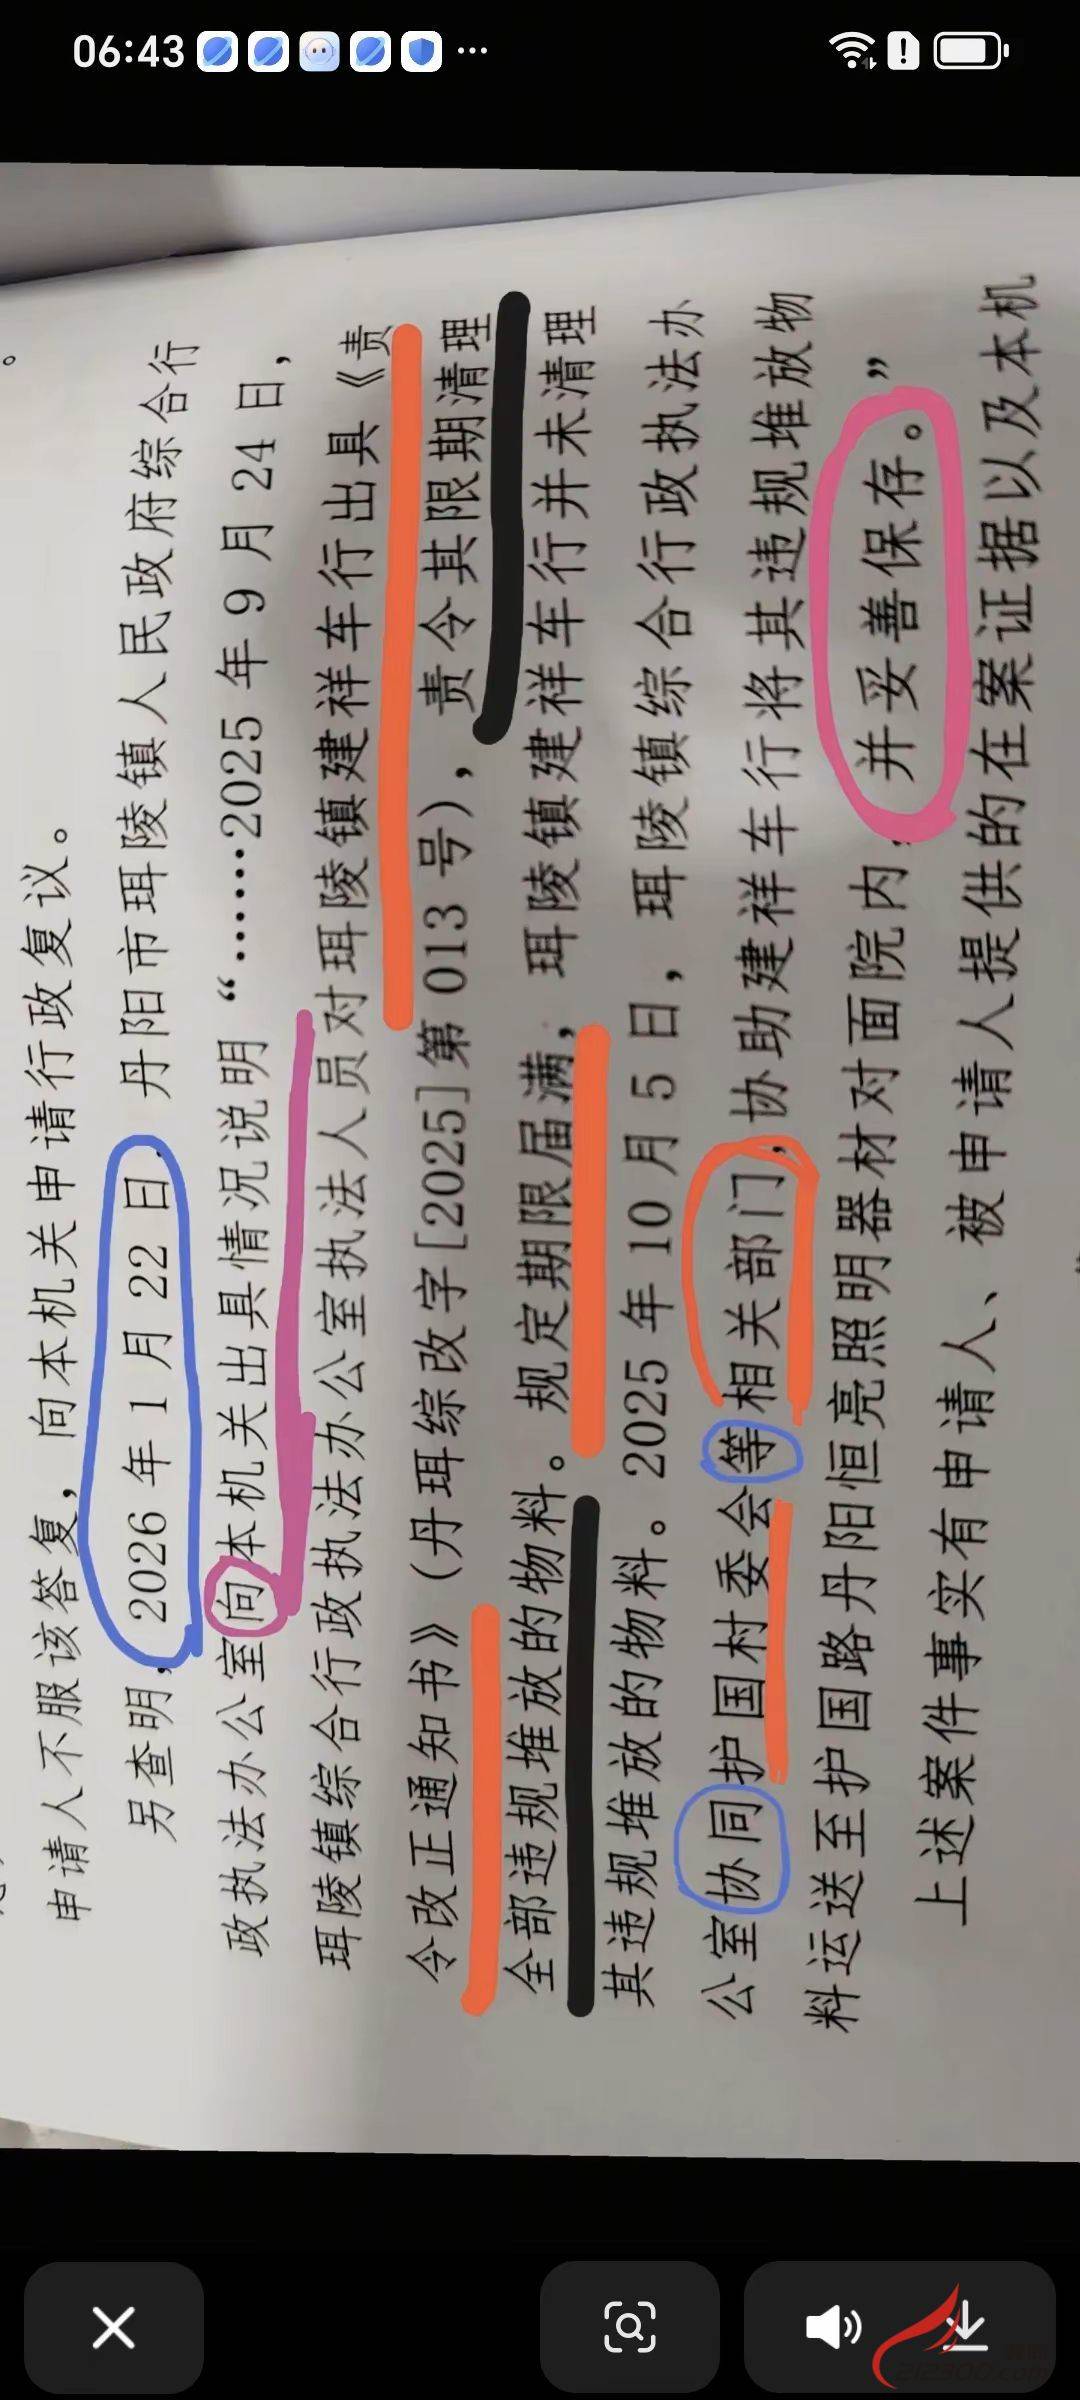 06:43
申请人不服该答复，向本机关申请行政复议。
另查明，2026 年 1 月 22 日，丹阳市珥陵镇人民政府综合行
政执法办公室向本机关出具情况说明“……2025 年 9 月 24 日，
珥陵镇综合行政执法办公室执法人员对珥陵镇建祥车行出具《责
令改正通知书》（丹珥综改字[2025]第 013 号），责令其限期清理
全部违规堆放的物料。规定期限届满，珥陵镇建祥车行并未清理
其违规堆放的物料。2025 年 10 月 5 日，珥陵镇综合行政执法办
公室协同护国村委会等相关部门，协助建祥车行将其违规堆放物
料运送至护国路丹阳恒亮照明器材对面院内，并妥善保存。”
上述案件事实有申请人、被申请人提供的在案证据以及本机
212300.com